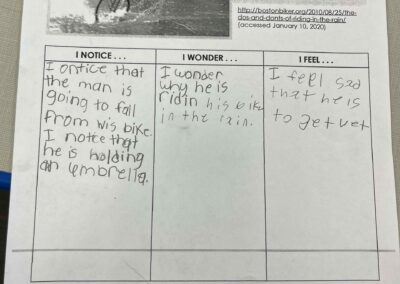 http://bostonbiker.org/2010/08/25/the-
dos-and-donts-of-riding-in-the-rain/
(accessed January 10, 2020)
I NOTICE . . .
I ontice that
the man is
going to fall
from wis bike.
I notce that
he is holding
an umbrella.
I WONDER . . .
I wonder
why he is
ridin his bike
in the rain.
I FEEL . . .
I feel sad
that he is
to get vet